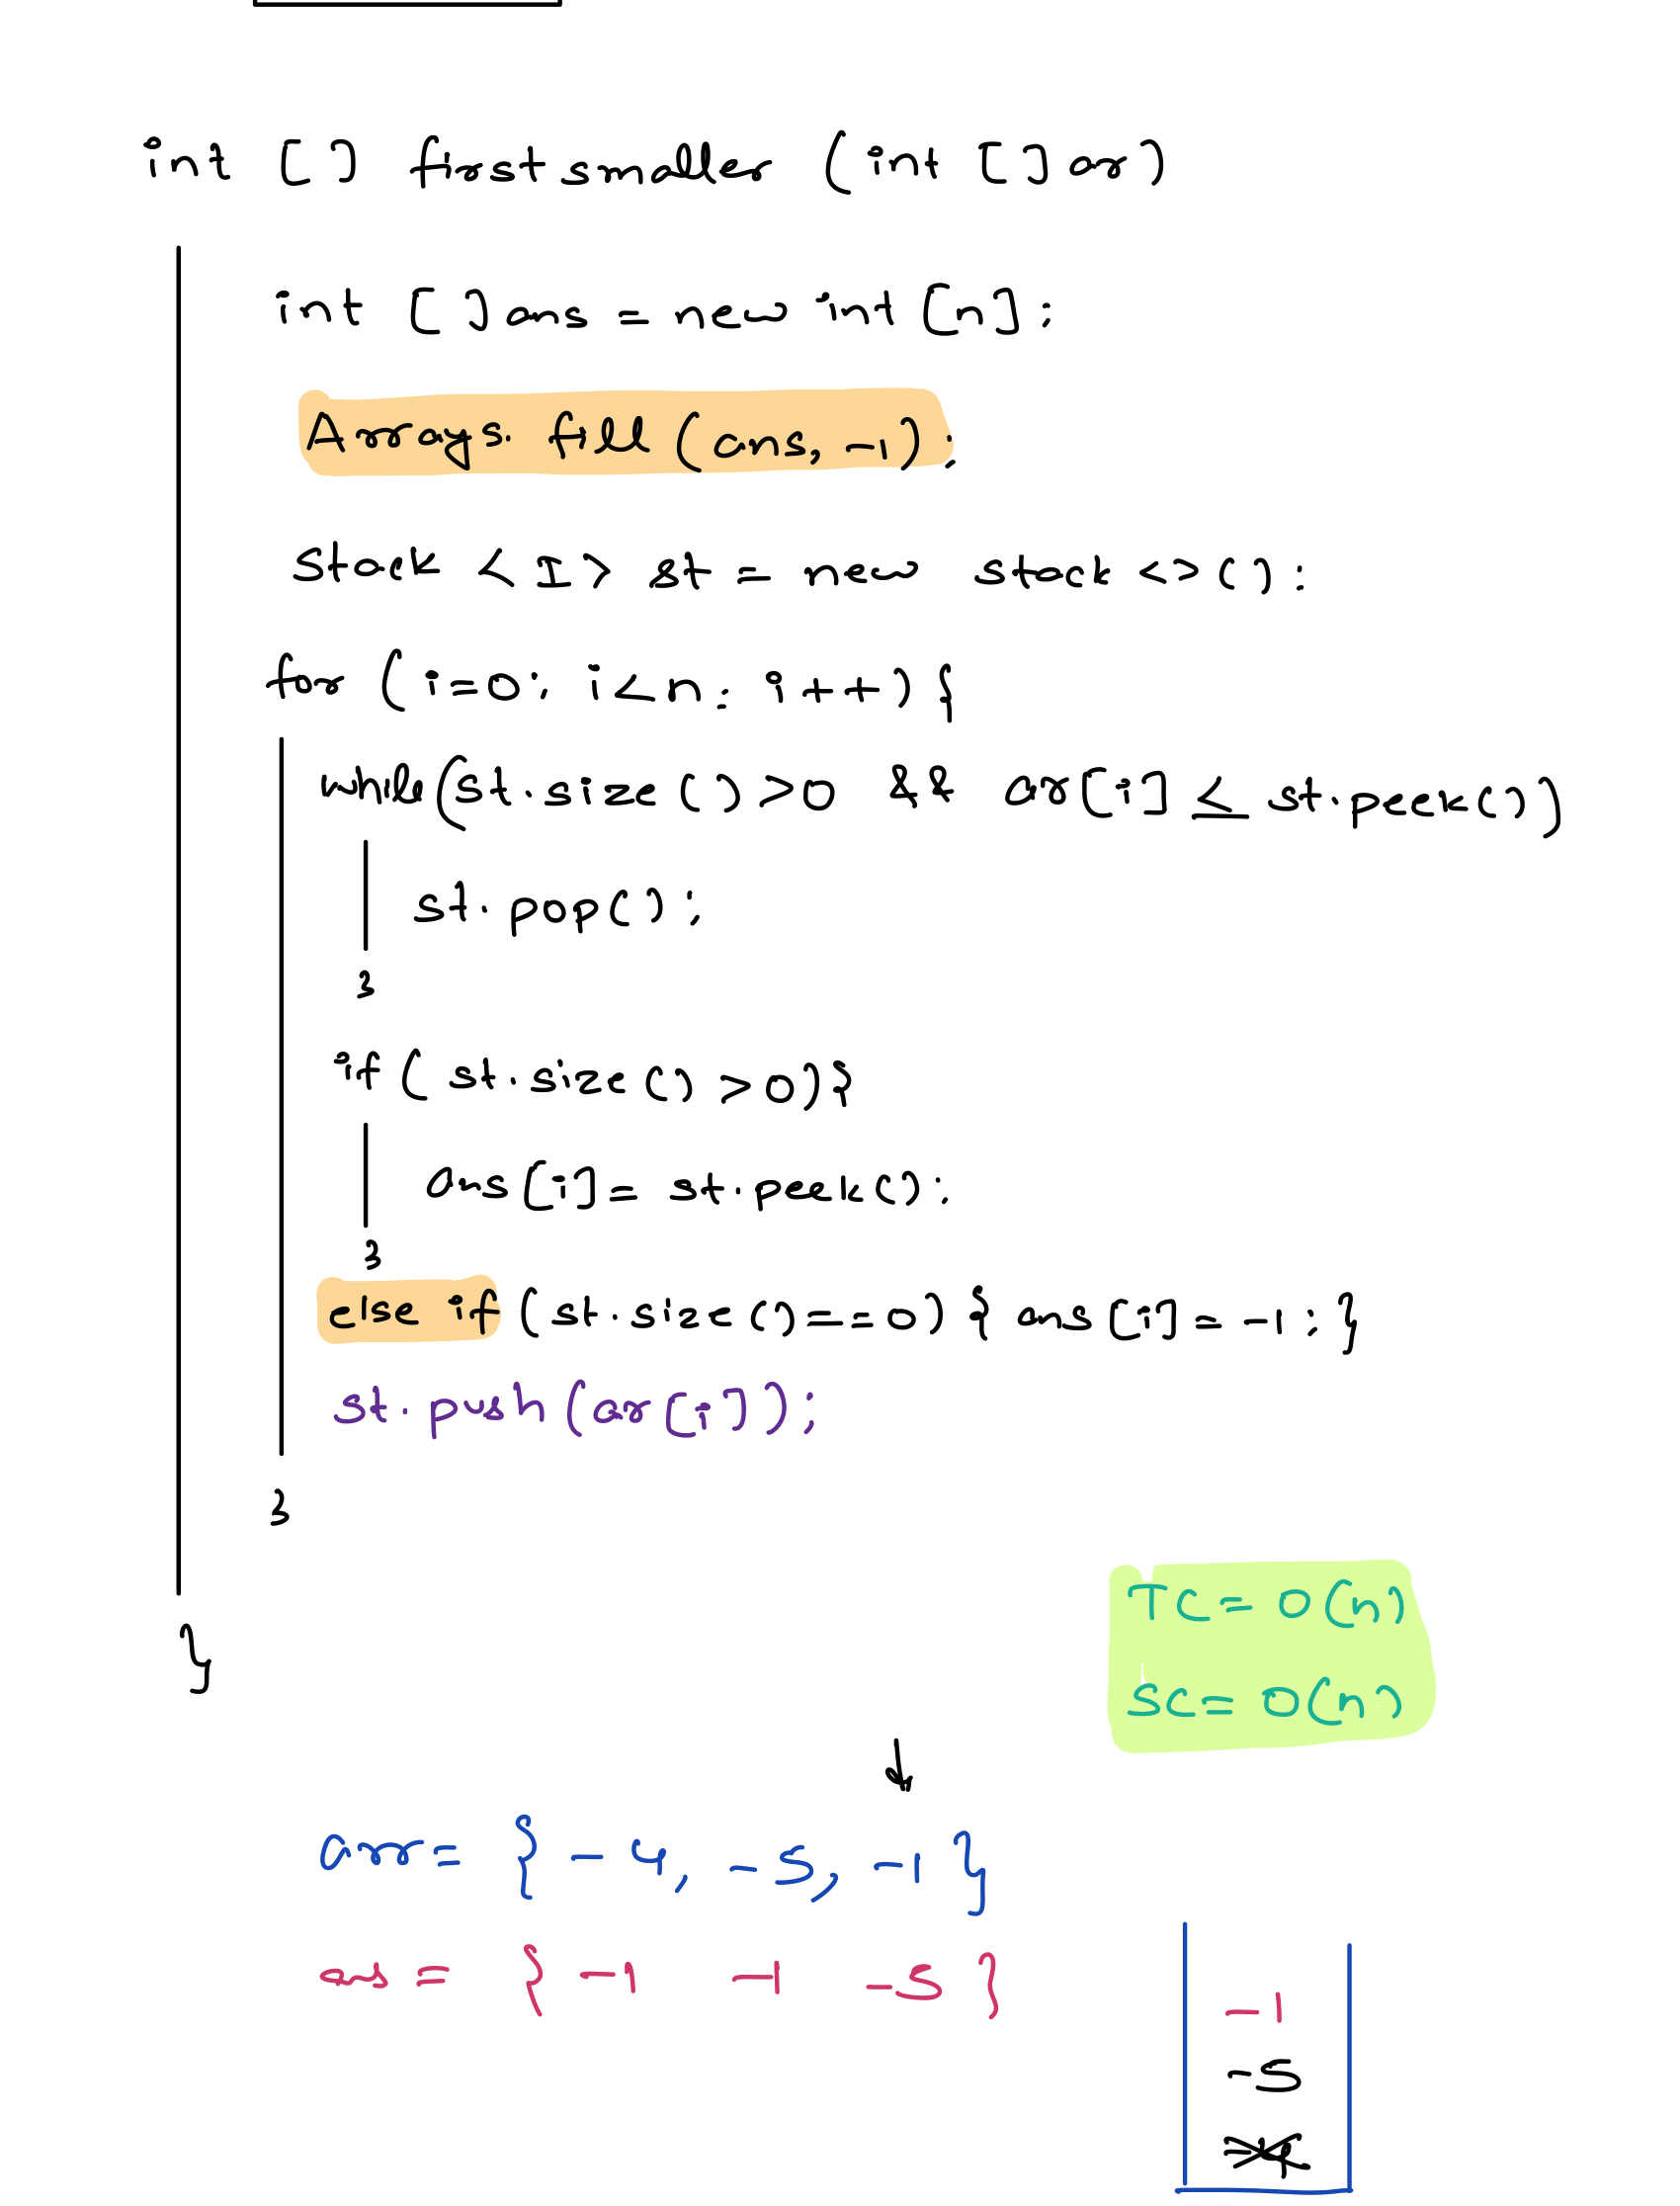 int [] firstsmaller (int [] ar)
int [] ans = new int [n];
Arrays. fill (ans, -1);
stack <I> st = new stack <> ();
for (i=0; i<n; i++) {
while(st.size() >0 && ar[i] ≤ st.peek())
st.pop();
}
if (st.size() >0){
ans[i] = st.peek();
}
else if (st.size()==0) { ans[i] = -1; }
st.push(ar[i]);
}
}
TC = O(n)
SC = O(n)
arr = { -4, -5, -1 }
ans = { -1 -1 -5 }
-1
-5
-4